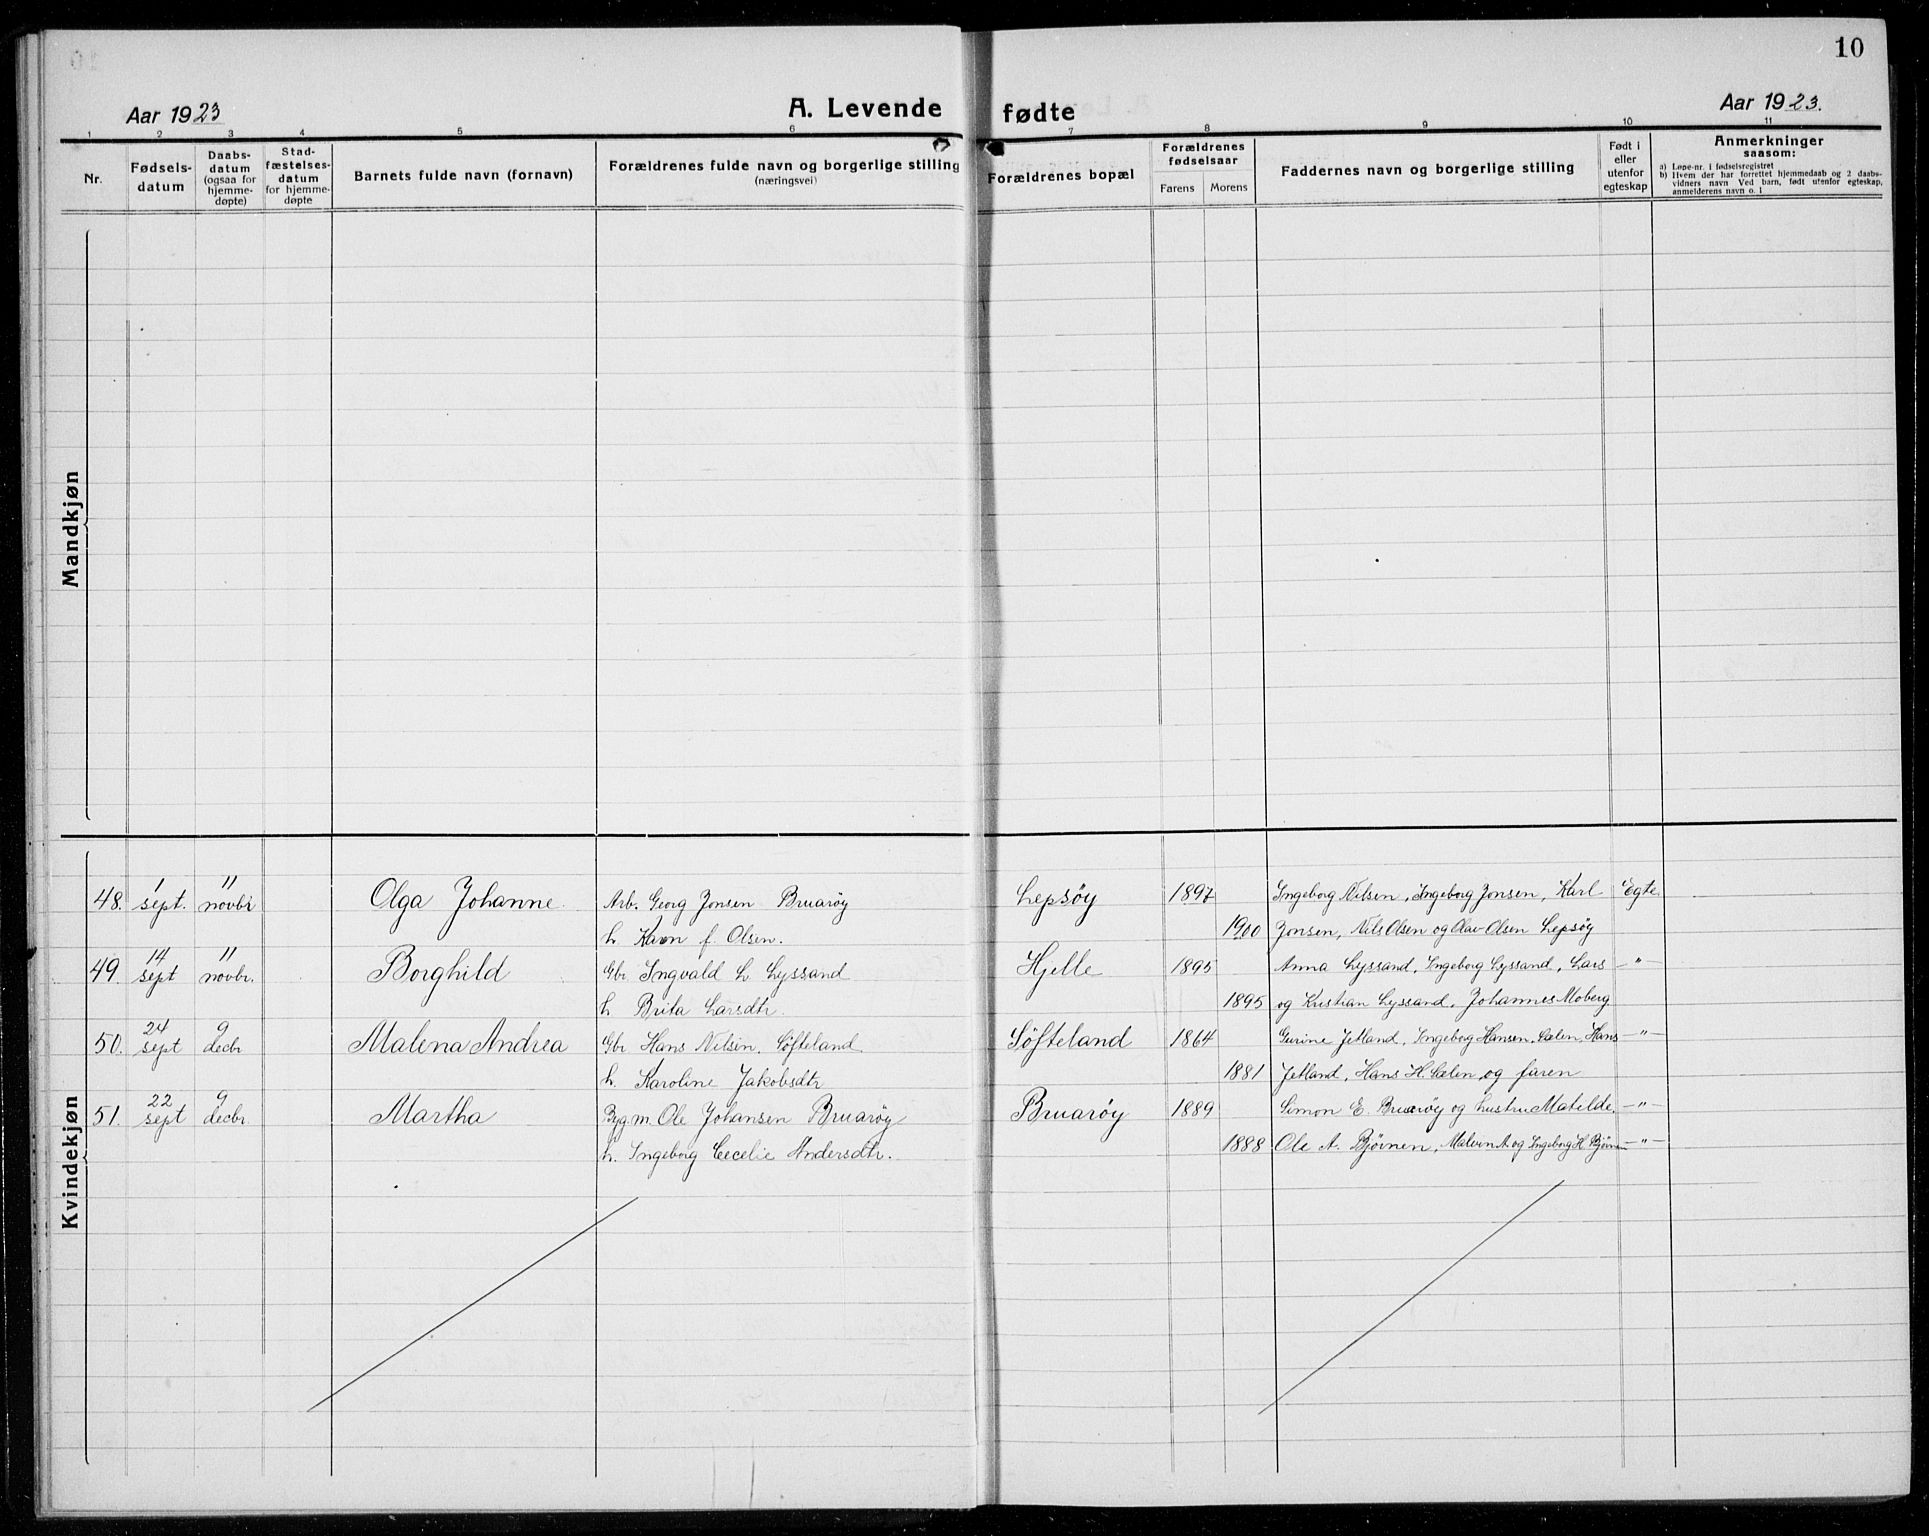 10
Aar 1923
A. Levende fødte
Aar 1923.
1 2 3 4 5 6 7 8 9 10 11
Nr.
Fødsels-
datum
Daabs-
datum
(ogsaa for
hjemme-
døpte)
Stad-
fæstelses-
datum
for hjemme-
døpte
Barnets fulde navn (fornavn)
Forældrenes fulde navn og borgerlige stilling
(næringsvei)
Forældrenes bopæl
Forældrenes
fødselsaar
Farens Morens
Faddernes navn og borgerlige stilling
Født i
eller
utenfor
egteskap
Anmerkninger
saasom:
a) Løpe-nr. i fødselsregistret
b) Hvem der har forrettet hjemmedaab og 2 daabs-
vidners navn Ved barn, født utenfor egteskap,
anmelderens navn o. l
Mandkjøn
Kvindekjøn
1 11
48. sept. novbr Olga Johanne Arb. Georg Jonsen Bruarøy Lepsøy 1897 Ingeborg Nilsen, Ingeborg Jonsen, Karl Egte
h. f. Olsen. 1900 Jonsen, Nils Olsen og Olav Olsen Lepsøy
14 11
49. sept novbr. Borghild Gbr Ingvald L. Lyssand Hjelle 1895 Anna Lyssand, Ingeborg Lyssand, Lars —"—
h. Brita Larsdtr. 1895 og Kristian Lyssand, Johannes Moberg
24 9
50. sept decbr Malena Andrea Gbr Hans Nilsen Søfteland Søfteland 1864 Gurine Jetland, Ingeborg Hansen Sælen, Hans —"—
h. Karoline Jakobsdtr 1881 Jetland, Hans H. Sælen og faren
22 9
51. sept decbr. Martha Byg.m. Ole Johansen Bruarøy Bruarøy 1889 Simon E. Bruarøy og hustru Matilde, —"—
h. Ingeborg Cecelie Andersdtr. 1888 Ole A. Bjørnen, Malvin A. og Ingeborg H. —"—